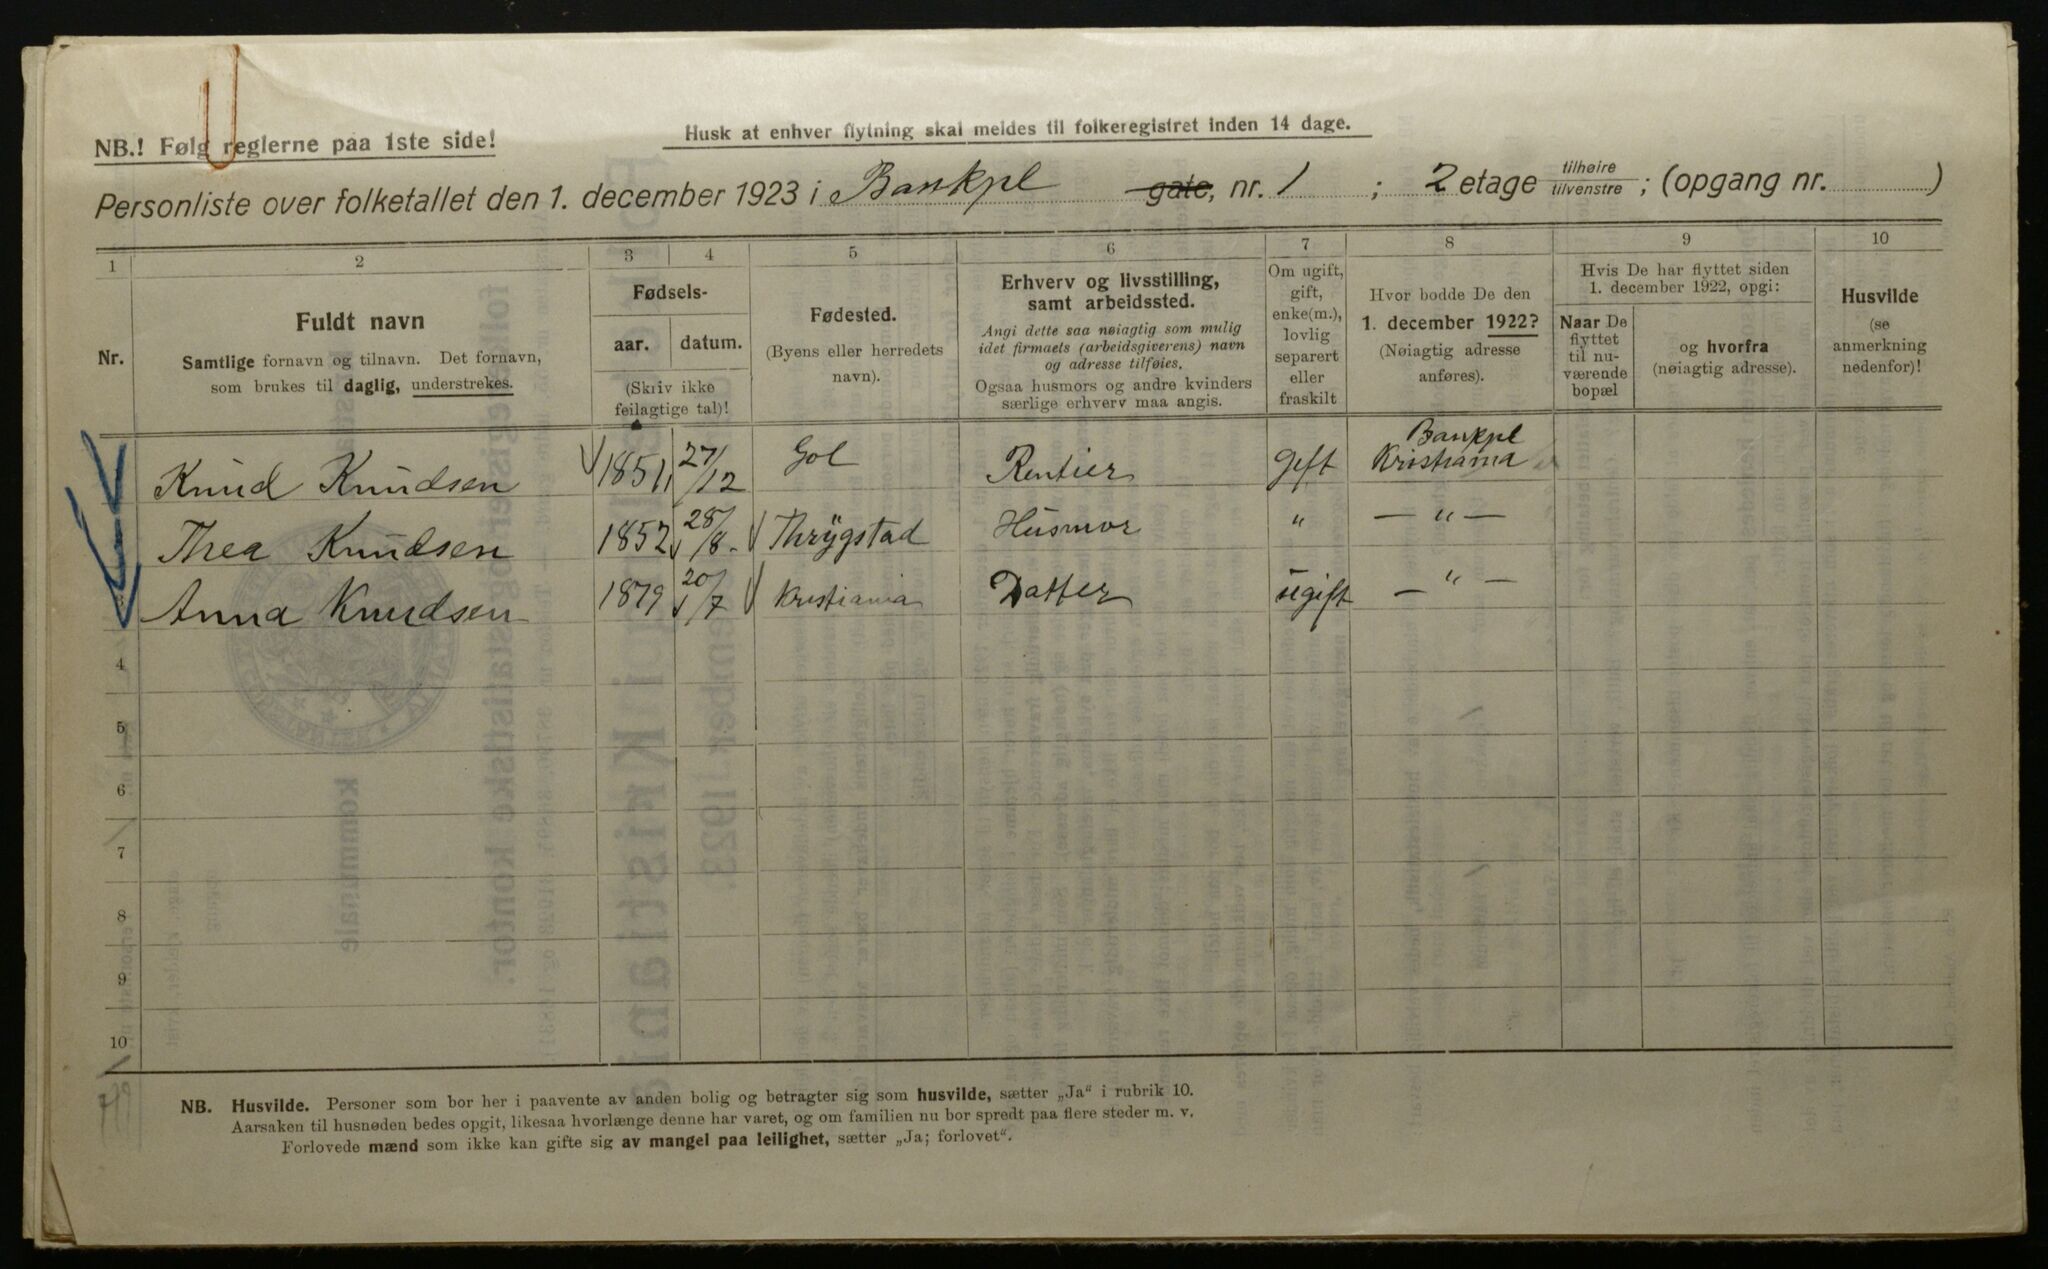 Husk at enhver flytning skal meldes til folkeregistret inden 14 dage.
NB.! Følg reglerne paa 1ste side!
Personliste over folketallet den 1. december 1923 i Bankpl gate, nr. 1 ; 2 etage tilhøire tilvenstre ; (opgang nr. )
1 2 3 4 5 6 7 8 9 10
Nr.
Fuldt navn
Samtlige fornavn og tilnavn. Det fornavn,
som brukes til daglig, understrekes.
Fødsels-
aar. datum.
(Skriv ikke
feilagtige tal)!
Fødested.
(Byens eller herredets
navn).
Erhverv og livsstilling,
samt arbeidssted.
Angi dette saa nøiagtig som mulig
idet firmaets (arbeidsgiverens) navn
og adresse tilføies.
Ogsaa husmors og andre kvinders
særlige erhverv maa angis.
Om ugift,
gift,
enke(m.),
lovlig
separert
eller
fraskilt
Hvor bodde De den
1. december 1922?
(Nøiagtig adresse
anføres).
Hvis De har flyttet siden
1. december 1922, opgi:
Naar De
flyttet
til nu-
værende
bopæl
og hvorfra
(nøiagtig adresse).
Husvilde
(se
anmerkning
nedenfor)!
Bankpl
Knud Knudsen 1851 27/12 Gol Rentier gift Kristiania
Thea Knudsen 1852 28/8 Thrygstad Husmor " — " —
Anna Knudsen 1879 20/7 Kristiania Datter ugift — " —
4
5
6
7
8
9
10
NB. Husvilde. Personer som bor her i paavente av anden bolig og betragter sig som husvilde, sætter „Ja“ i rubrik 10.
Aarsaken til husnøden bedes opgit, likesaa hvorlænge denne har varet, og om familien nu bor spredt paa flere steder m. v.
Forlovede mænd som ikke kan gifte sig av mangel paa leilighet, sætter „Ja; forlovet“.